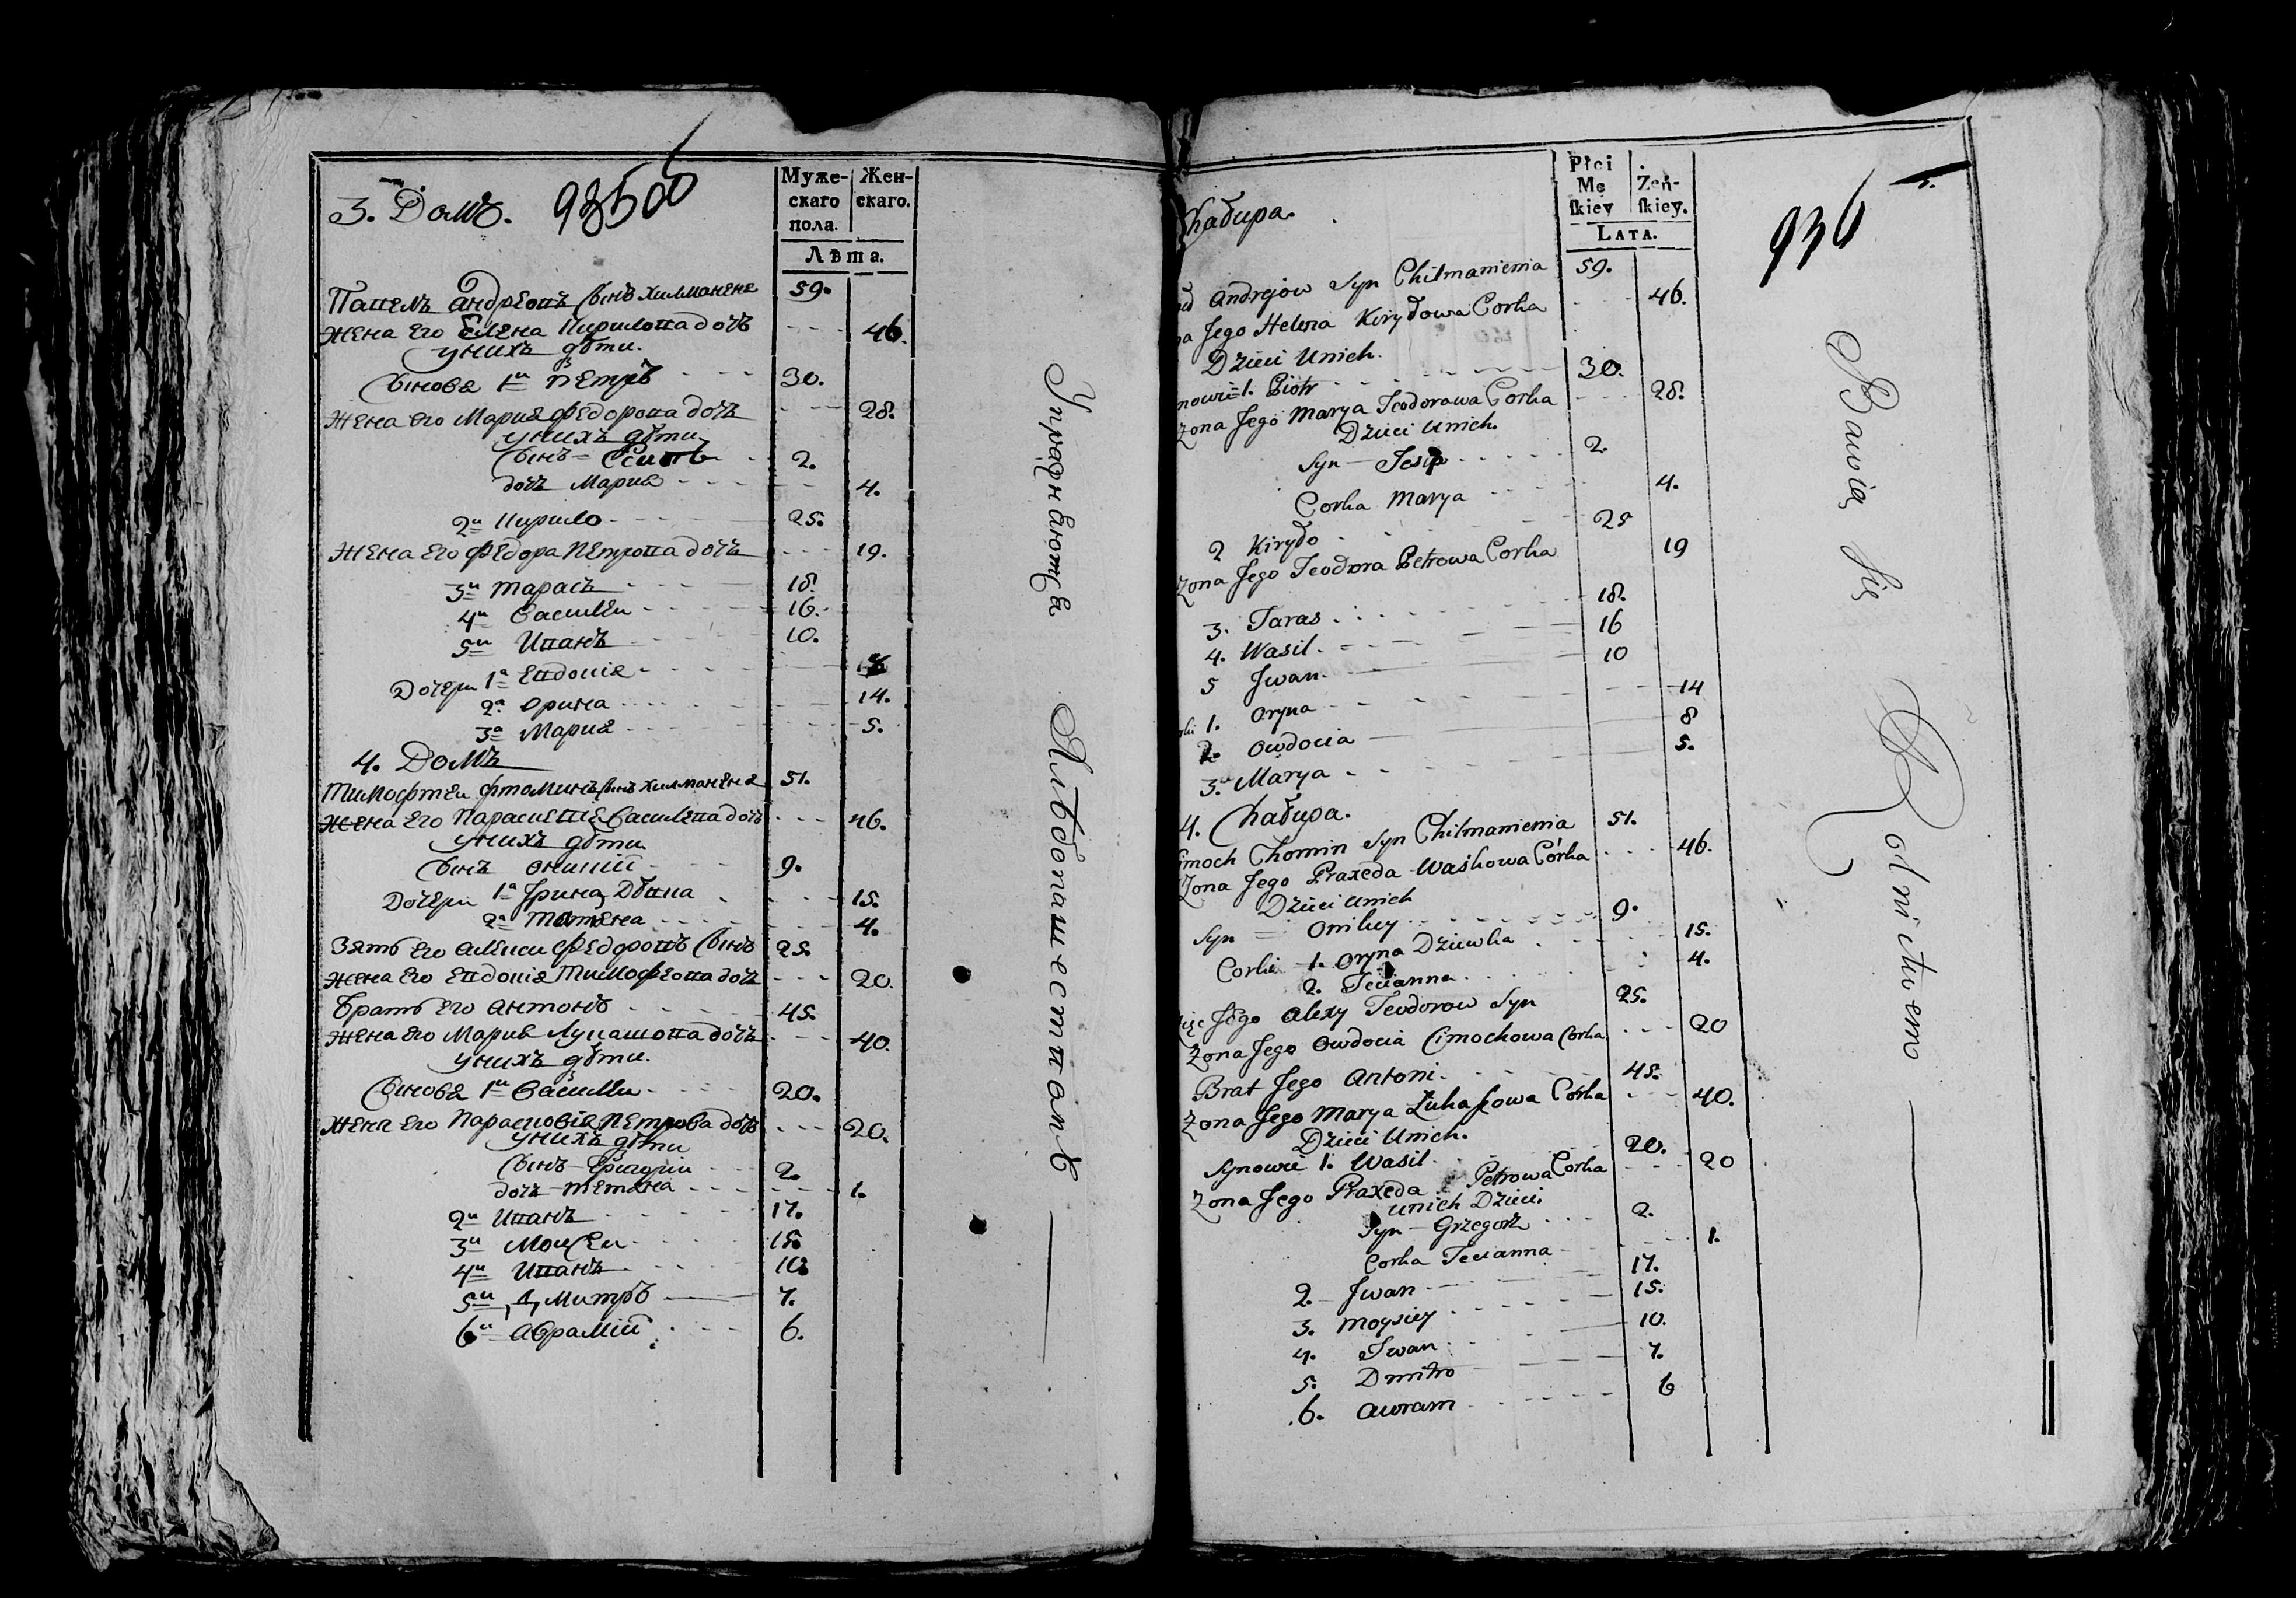 3. Домъ. 935об
Муже-
скаго
пола.
Жен-
скаго.
Лѣта.
Павелъ Андреовъ сынъ Хилманеня 59.
Жена его Елена Кирилова дочь 46.
у нихъ дѣти.
Сыновя 1й Петръ 30.
Жена его Мария Федорова дочь 28.
у нихъ дѣти
сынъ = Есипъ 2.
дочь Мария 4.
2й Кирило 25.
Жена его Федора Петрова дочь 19.
3й Тарасъ 18.
4й Василей 16.
5й Иванъ 10.
Дочери 1а Евдокия 8
2а Орина 14.
3а Мария 5.
4. Домъ
Тимофтей Фтоминъ сынъ Хилманеня 51.
Жена его Парасневия Василева дочь 46.
у нихъ дѣти
сынъ Оникий 9.
Дочери 1а Ирина Дѣвка 15.
2а Татяна 4.
Зять его Алекси Федоровъ сынъ 25.
Жена его Евдокия Тимофеова дочь 20.
Братъ его Антонъ 45.
Жена его Мария Лукашова дочь 40.
у нихъ дѣти.
Сыновя 1й Василий 20.
Жена его Парасковия Петрова дочь 20.
у нихъ дѣти
сынъ 2.
дочь Тетяна 1.
2й Иванъ 17.
3й Моисей 15.
4й Иванъ 10.
5й Дмитръ 7.
6й Абрамій 6.
Упражняются Хлѣбопашествомъ
Chałupa.
Płci
Mę
skiey
Żeń-
skiey.
LATA.
936
Andrejow Syn Chilmanienia 59.
Jego Helena Kiryłowa Corka 46.
Dzieci Unich.
1. Piotr 30.
Żona Jego Marya Teodorowa Corka 28.
Dzieci Unich.
Syn — Jesip 2.
Corka Marya 4.
2 Kiryło 25
Żona Jego Teodora Petrowa Corka 19
3. Taras 18.
4. Wasil 16
5 Jwan 10
1. Oryna 14
2. Owdocia 8
3. Marya 5.
4. Chałupa.
Chomin Syn Chilmanienia 51.
Żona Jego Praxeda Waśkowa Córka 46.
Dzieci Unich
Syn = Onikey 9.
Corki 1. Oryna Dziewka 15.
2. Tecianna 4.
Jego Alexy Teodorow Syn 25.
Żona Jego Owdocia Cimochowa Corka 20
Brat Jego Antoni 45.
Żona Jego Marya Łukaszowa Córka 40.
Dzieci Unich.
Synowie 1. Wasil 20.
Żona Jego Praxeda Petrowa Corka 20
Unich Dzieci
Syn — Grzegorz 2.
Corka Tecianna 1.
2. Jwan 17.
3. Moysiey 15.
4. Jwan 10.
5. Dmitro 7.
6. Awram 6
Bawią się Rolnictwem